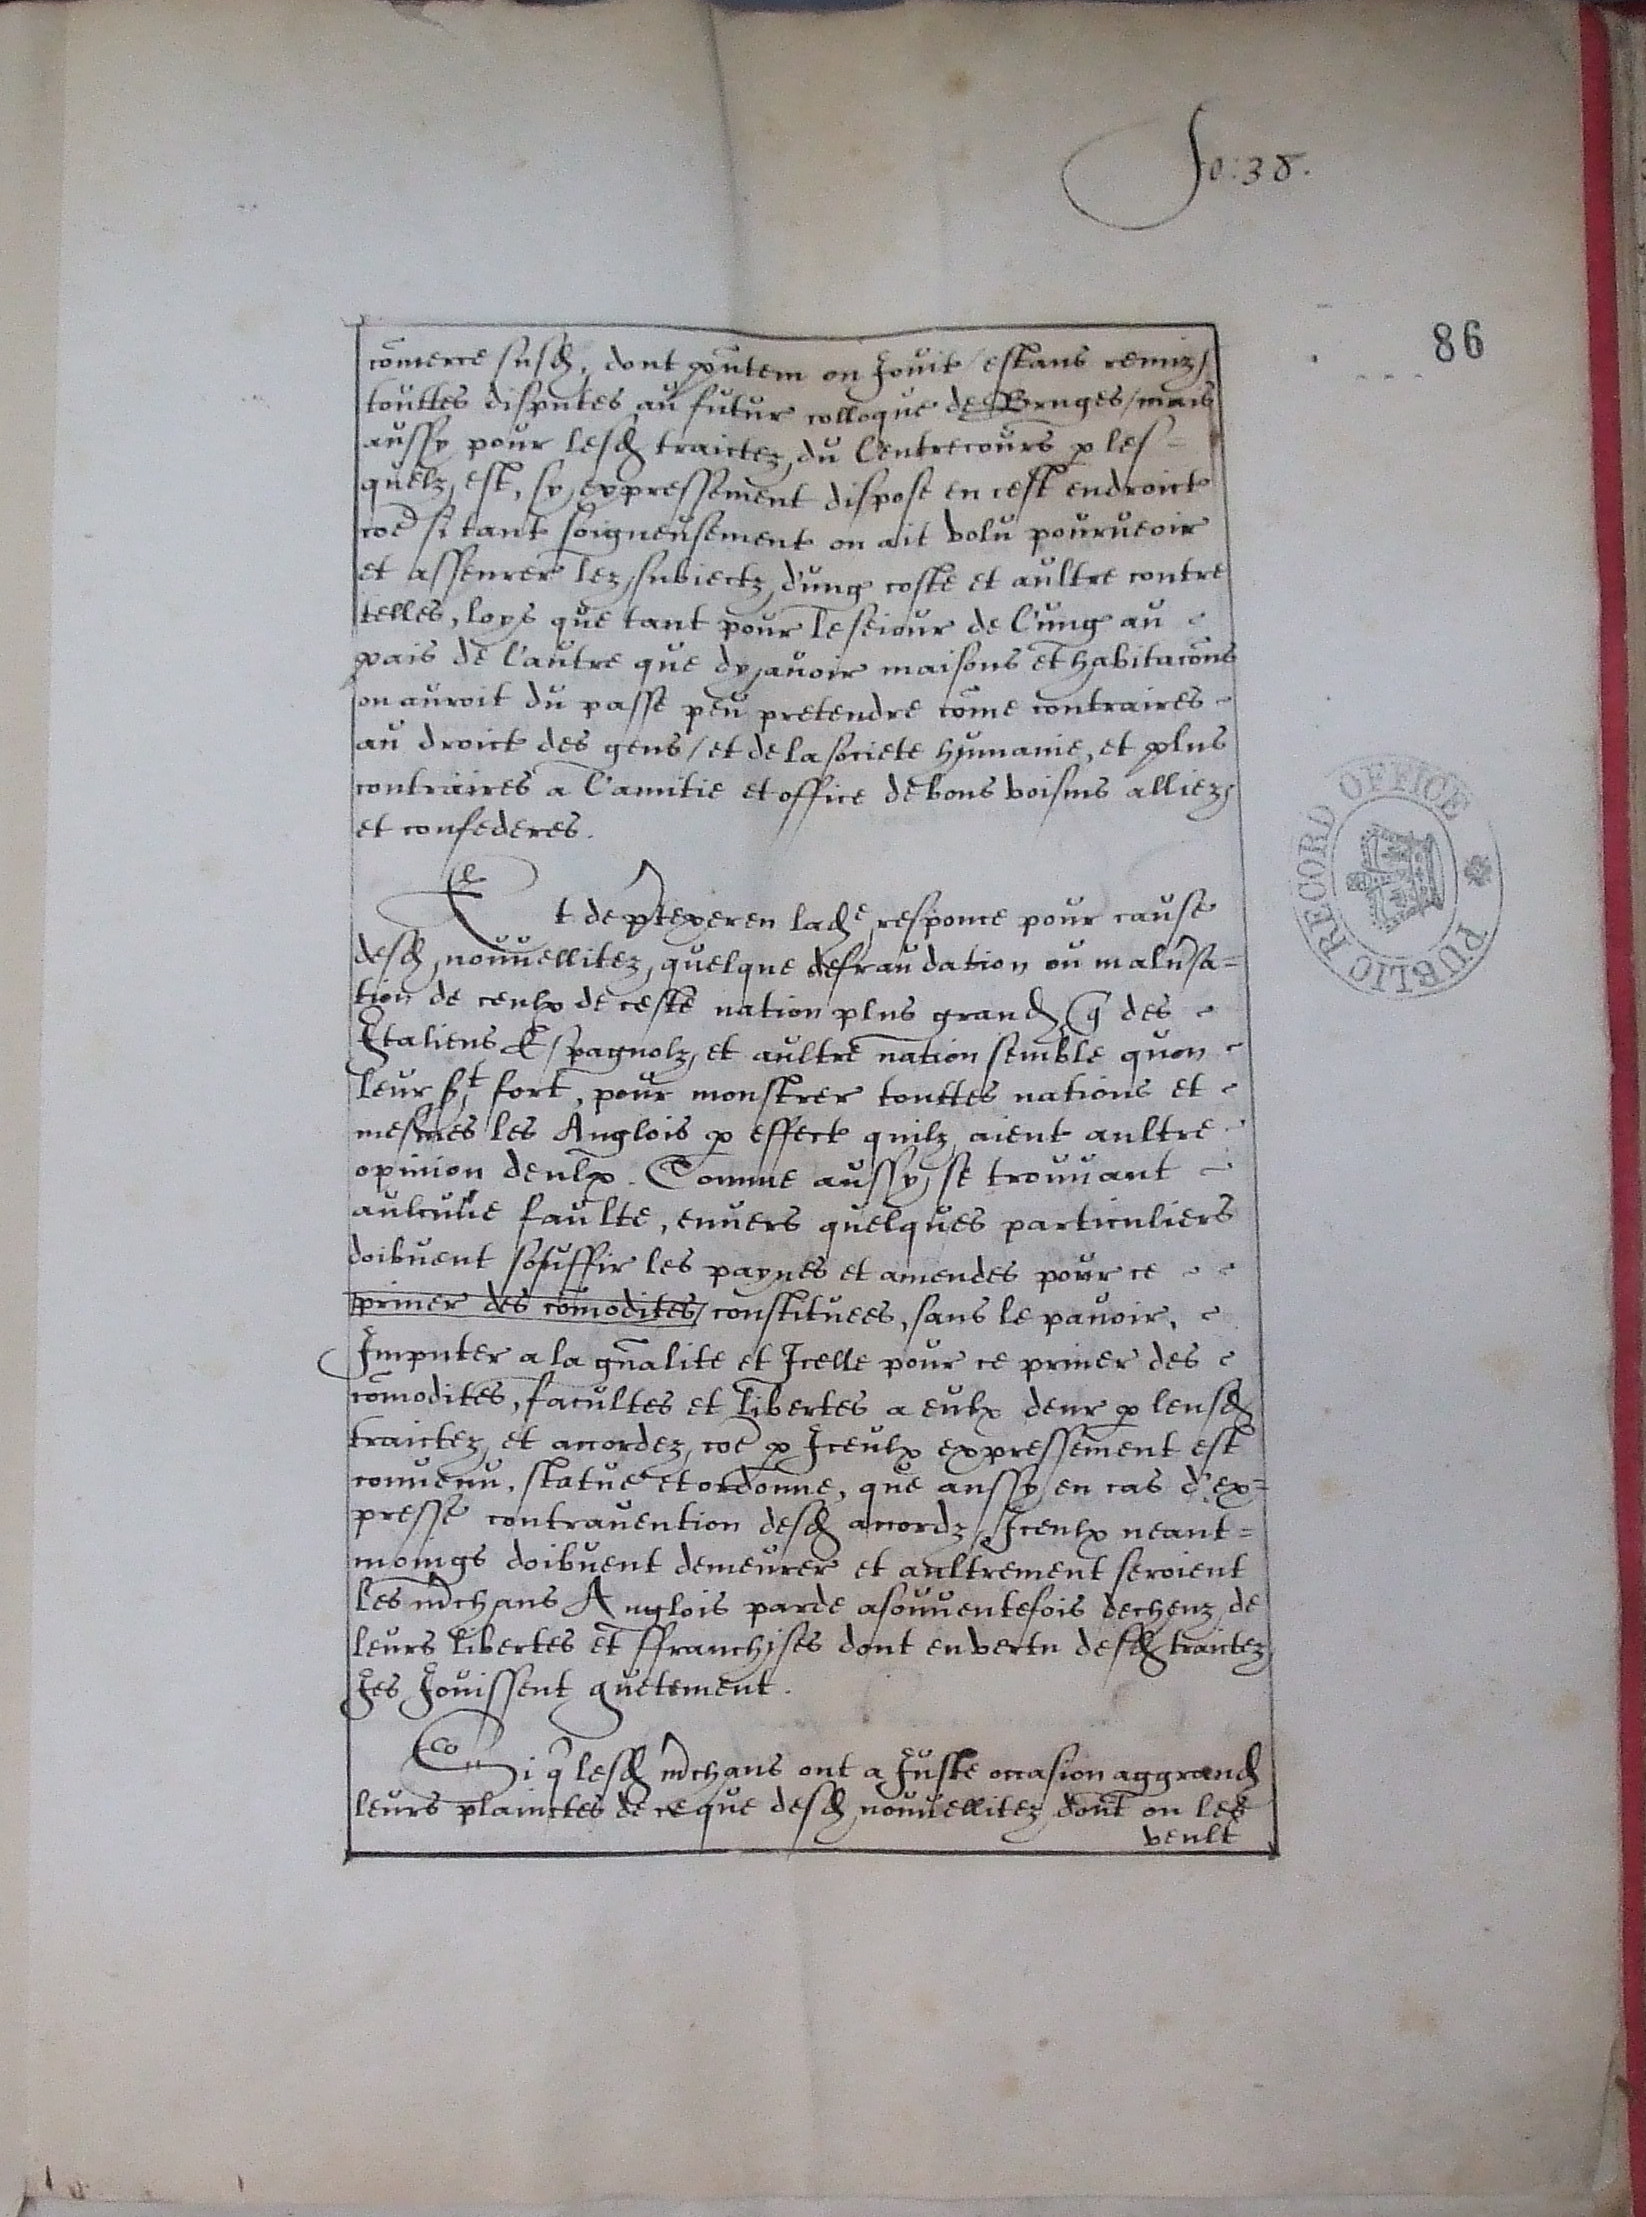 fo: 38.
86
cōmerce susd, dont pntem on Jouit / estans remiz
touttes disputes au futur colloque de Bruges / mais
aussy pour lesd traictez du lentrecours p les=
quelz est, sy expressement dispose en cest endroict
coe si tant soigneusement on ait volu pourueoir
et asseurer lez subiectz d'ung coste et aultre contre
telles, loys que tant pour le seiour de l'ung au
pais de l'autre que dy auoir maisons et habitacōns
on auroit du passe peu pretendre cōme contraires
au droict des gens / et de la societe humanie, et plus
contraires a l'amitie et office de bons voisins alliez
et confederes.
Et de ptexer en lade responce pour cause
desd nouuellitez, quelque defraudation ou malusa=
tion de ceulx de ceste nation plus grand q des
Italiens Espagnolz, et aultre nation semble quon
leur ft fort, pour monstrer touttes nations et
mesmes les Anglois p effect quilz aient aultre
opinion deulx. Comme aussy se trouuant
aulcune faulte, enuers quelques particuliers
doibuent souffir les paynes et amendes pour ce
priuer des cōmodites constituees, sans le pauoir,
Imputer a la gnalite et Icelle pour ce priuer des
cōmodites, facultes et libertes a eulx deur p leusd
traictez et acordez, coe p Iceulx expressement est
conuenu, statue et ordonne, que aussy en cas d'ex=
presse contrauention desd acordz, Iceulx neant=
moings doibuent demeurer et aultrement seroient
les mchans Anglois parde asouuentefois decheuz de
leurs libertes et ffranchises dont en vertu desd traictez
Jes Jouissent quetement.
i q lesd mchans ont a Juste occasion aggrand
leurs plainctes de ce que desd nouuellitez dont on les
veult
PUBLIC RECORD OFFICE